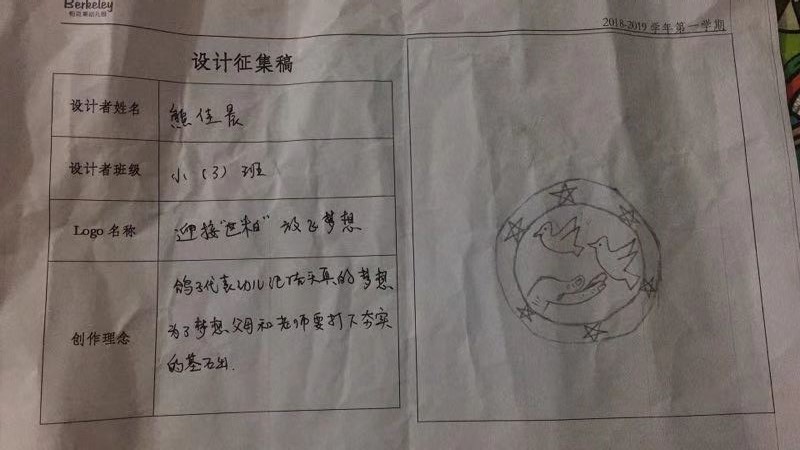 Berkeley
2018-2019学年第一学期
设计征集稿
设计者姓名
熊佳晨
设计者班级
小（3）班
Logo 名称
迎接"世粕" 放飞梦想
创作理念
鸽子代表幼儿 天真的梦想
为了梦想父母和老师要打下夯实
的基石出.